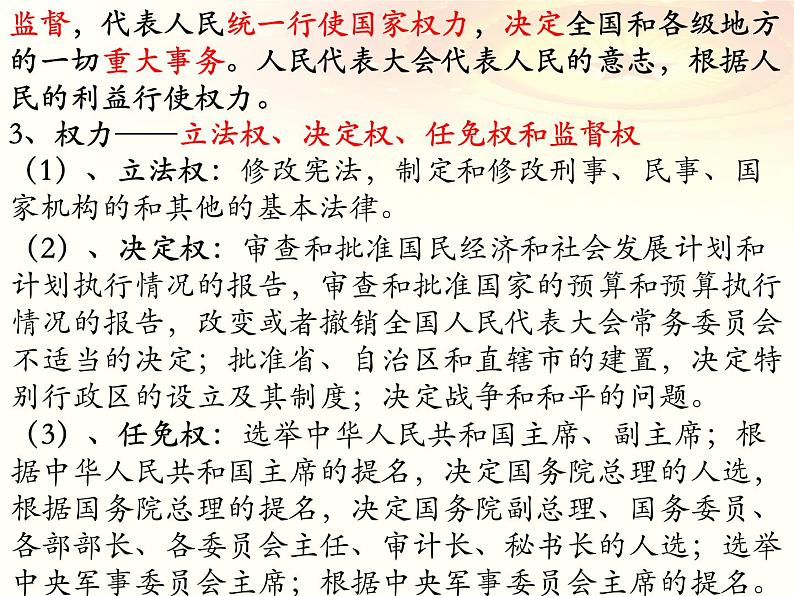 监督，代表人民统一行使国家权力，决定全国和各级地方
的一切重大事务。人民代表大会代表人民的意志，根据人
民的利益行使权力。
3、权力——立法权、决定权、任免权和监督权
（1）、立法权：修改宪法，制定和修改刑事、民事、国
家机构的和其他的基本法律。
（2）、决定权：审查和批准国民经济和社会发展计划和
计划执行情况的报告，审查和批准国家的预算和预算执行
情况的报告，改变或者撤销全国人民代表大会常务委员会
不适当的决定；批准省、自治区和直辖市的建置，决定特
别行政区的设立及其制度；决定战争和和平的问题。
（3）、任免权：选举中华人民共和国主席、副主席；根
据中华人民共和国主席的提名，决定国务院总理的人选，
根据国务院总理的提名，决定国务院副总理、国务委员、
各部部长、各委员会主任、审计长、秘书长的人选；选举
中央军事委员会主席；根据中央军事委员会主席的提名。